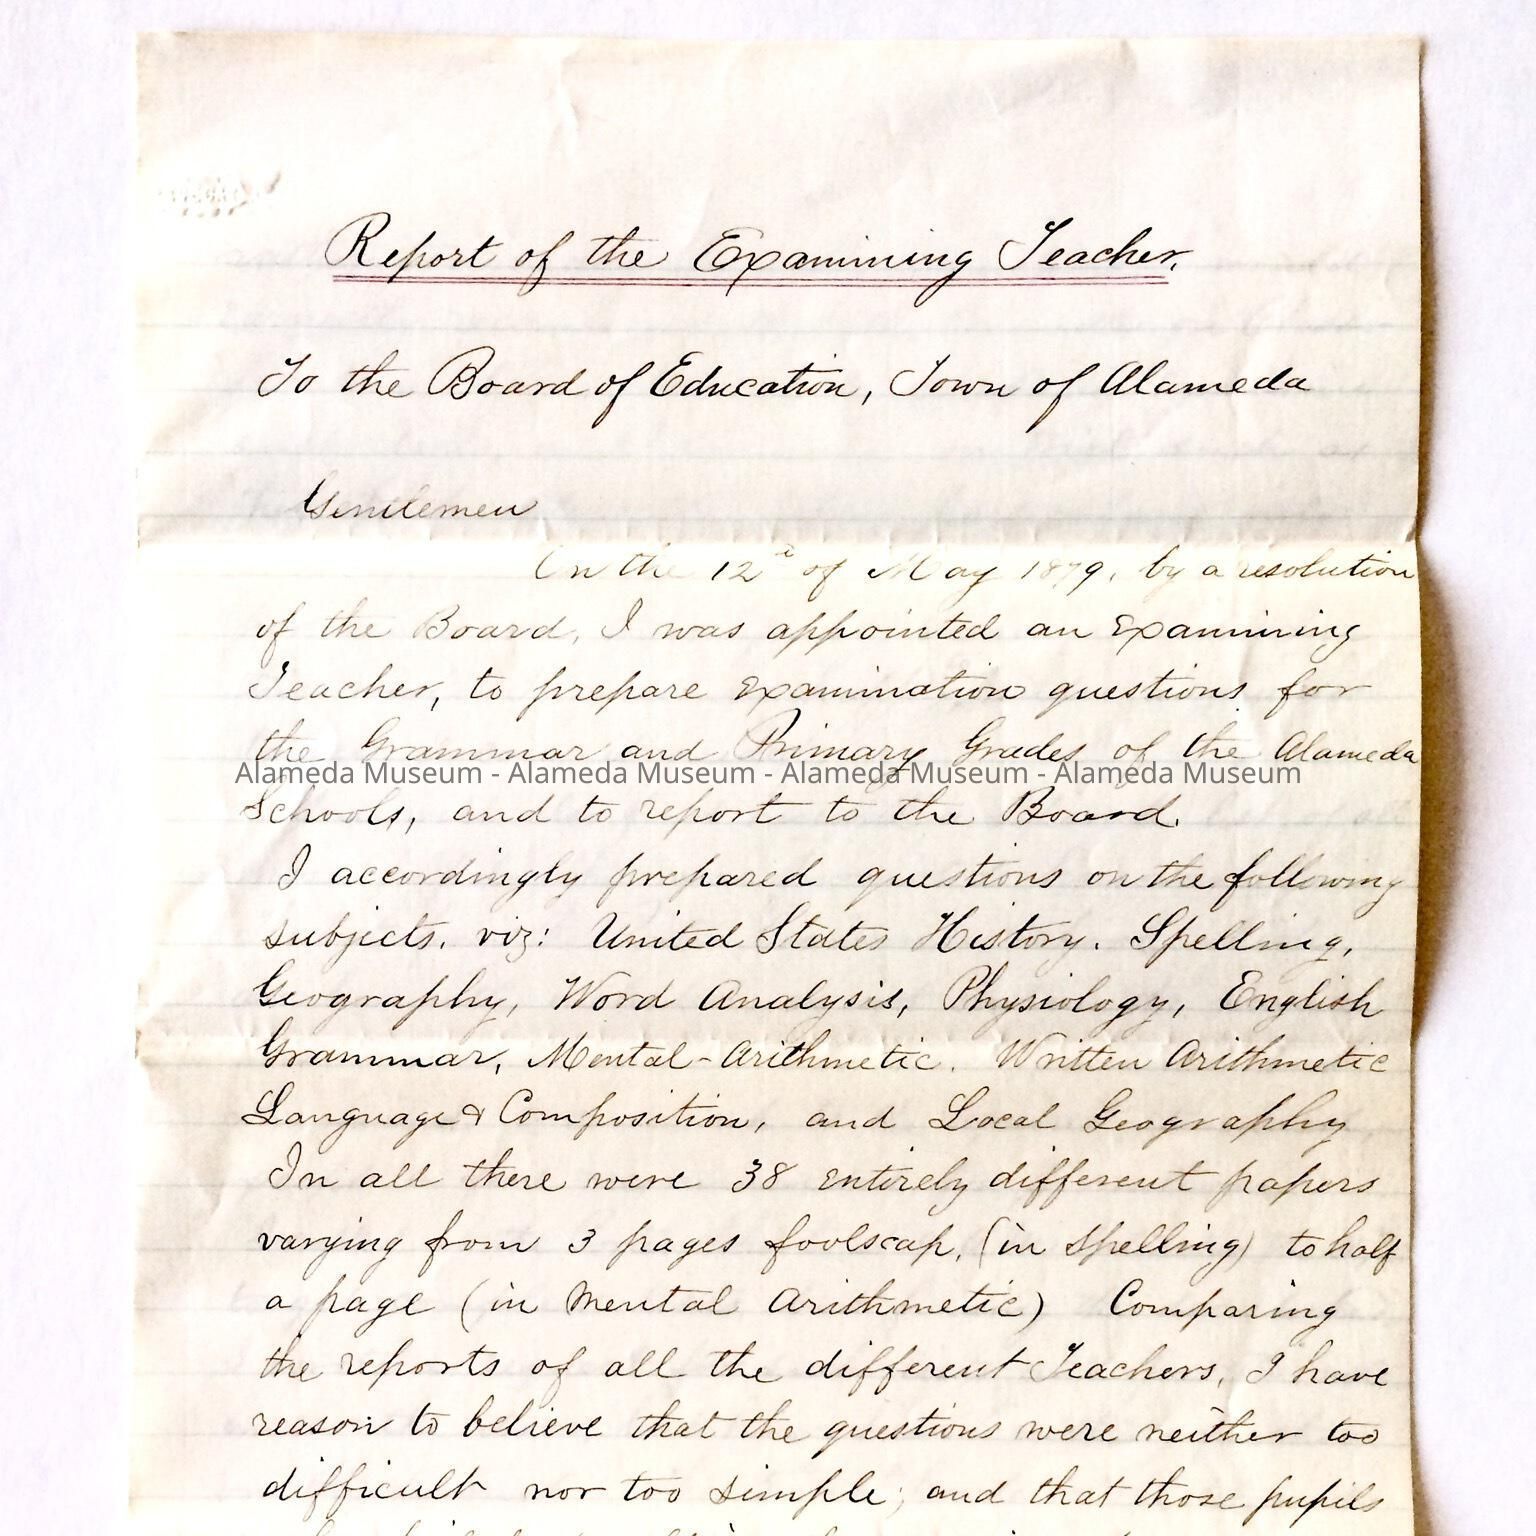 Report of the Examining Teacher.
To the Board of Education, Town of Alameda
Gentlemen
On the 12th of May 1879, by a resolution
of the Board, I was appointed an Examining
Teacher, to prepare Examination questions for
the Grammar and Primary Grades of the Alameda
Alameda Museum - Alameda Museum - Alameda Museum - Alameda Museum
Schools, and to report to the Board.
I accordingly prepared questions on the following
subjects. viz: United States History. Spelling,
Geography, Word Analysis, Physiology, English
Grammar, Mental-Arithmetic. Written Arithmetic
Language & Composition, and Local Geography
In all there were 38 Entirely different papers
varying from 3 pages foolscap, (in Spelling) to half
a page (in Mental Arithmetic) Comparing
the reports of all the different Teachers, I have
reason to believe that the questions were neither too
difficult nor too simple; and that those pupils